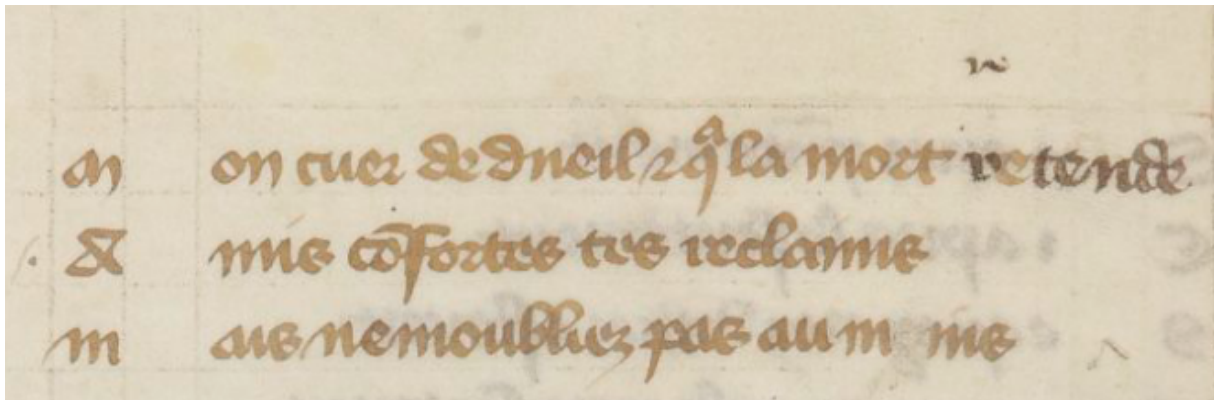 M on cuer de dueil ⁊ qᵃ la mort retende
A mis cōfortes tes reclamis
M ais nemoubliez pas au m mis